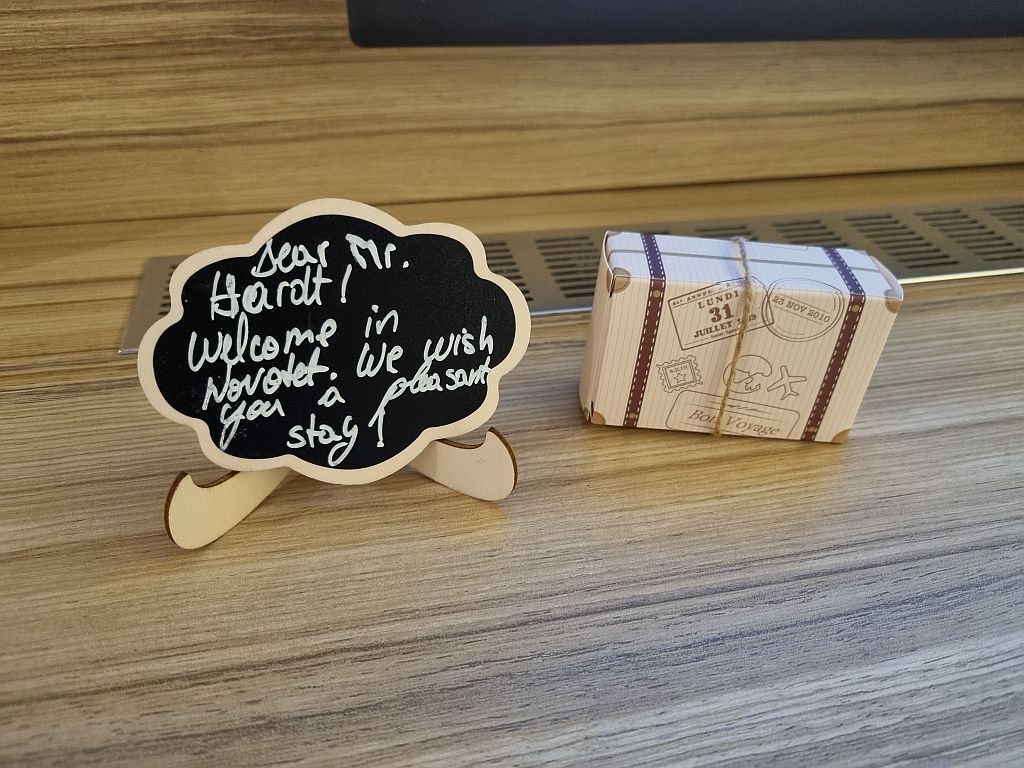 Dear Mr.
Hardt!
Welcome in
Novotel. We wish
you a pleasant
stay!
LUNDI
31
JUILLET
23 NOV 2010
PARIS
Bon Voyage